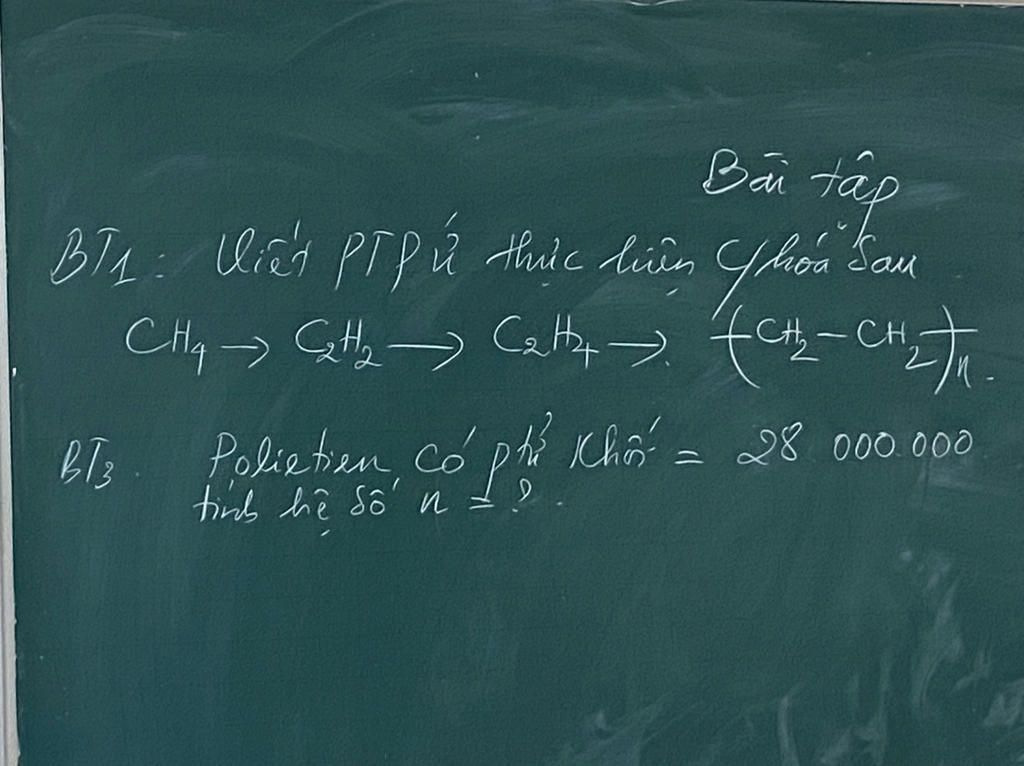 Bài tập
BT1: Viết PTPứ thực hiện c/khoá sau
CH4 → C2H2 → C2H4 → (CH2-CH2)n.
BT3. Polietien có ptử khối = 28 000.000
tính hệ số n = ?.